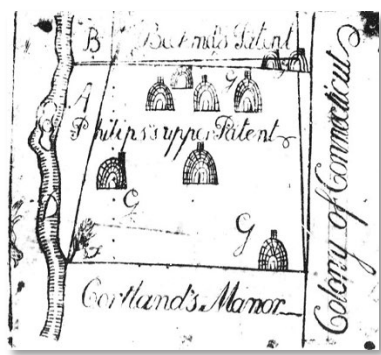 B Beekmd's Patent
G
A
Philips's upper Patent
G
G
Cortland's Manor
Colony of Connecticut